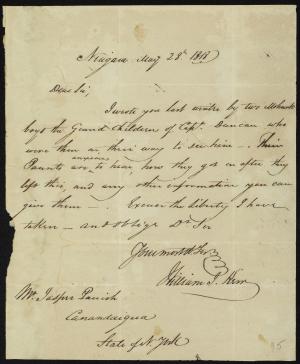 Niagara May 28th 1818
Dear Sir,
I wrote you last winter by two Mohawk
boys the Grand Children of Capt. Duncan who
were then on their way to see him. Their
anxious
Parents are to hear, how they got on after they
left this, and any other information you can
give them — Excuse the liberty I have
taken — and oblige Dr Sir
Your most Obt Ser
William J. Kerr
Mr. Jasper Parish
Canandaigua
State of N. York